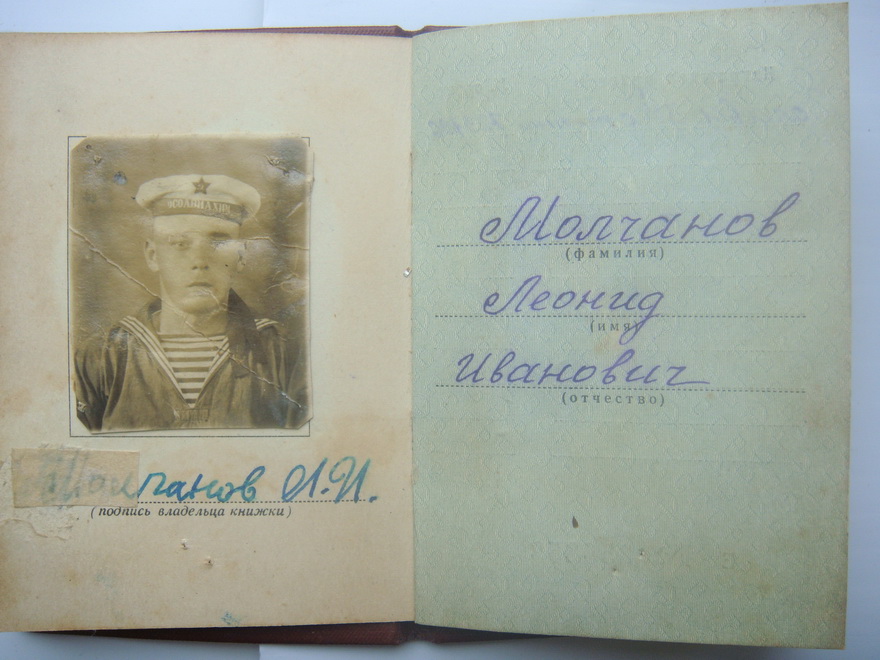 ОСОАВИАХИМ
Молчанов Л.И.
(подпись владельца книжки)
Молчанов
(фамилия)
Леонид
(имя)
Иванович
(отчество)